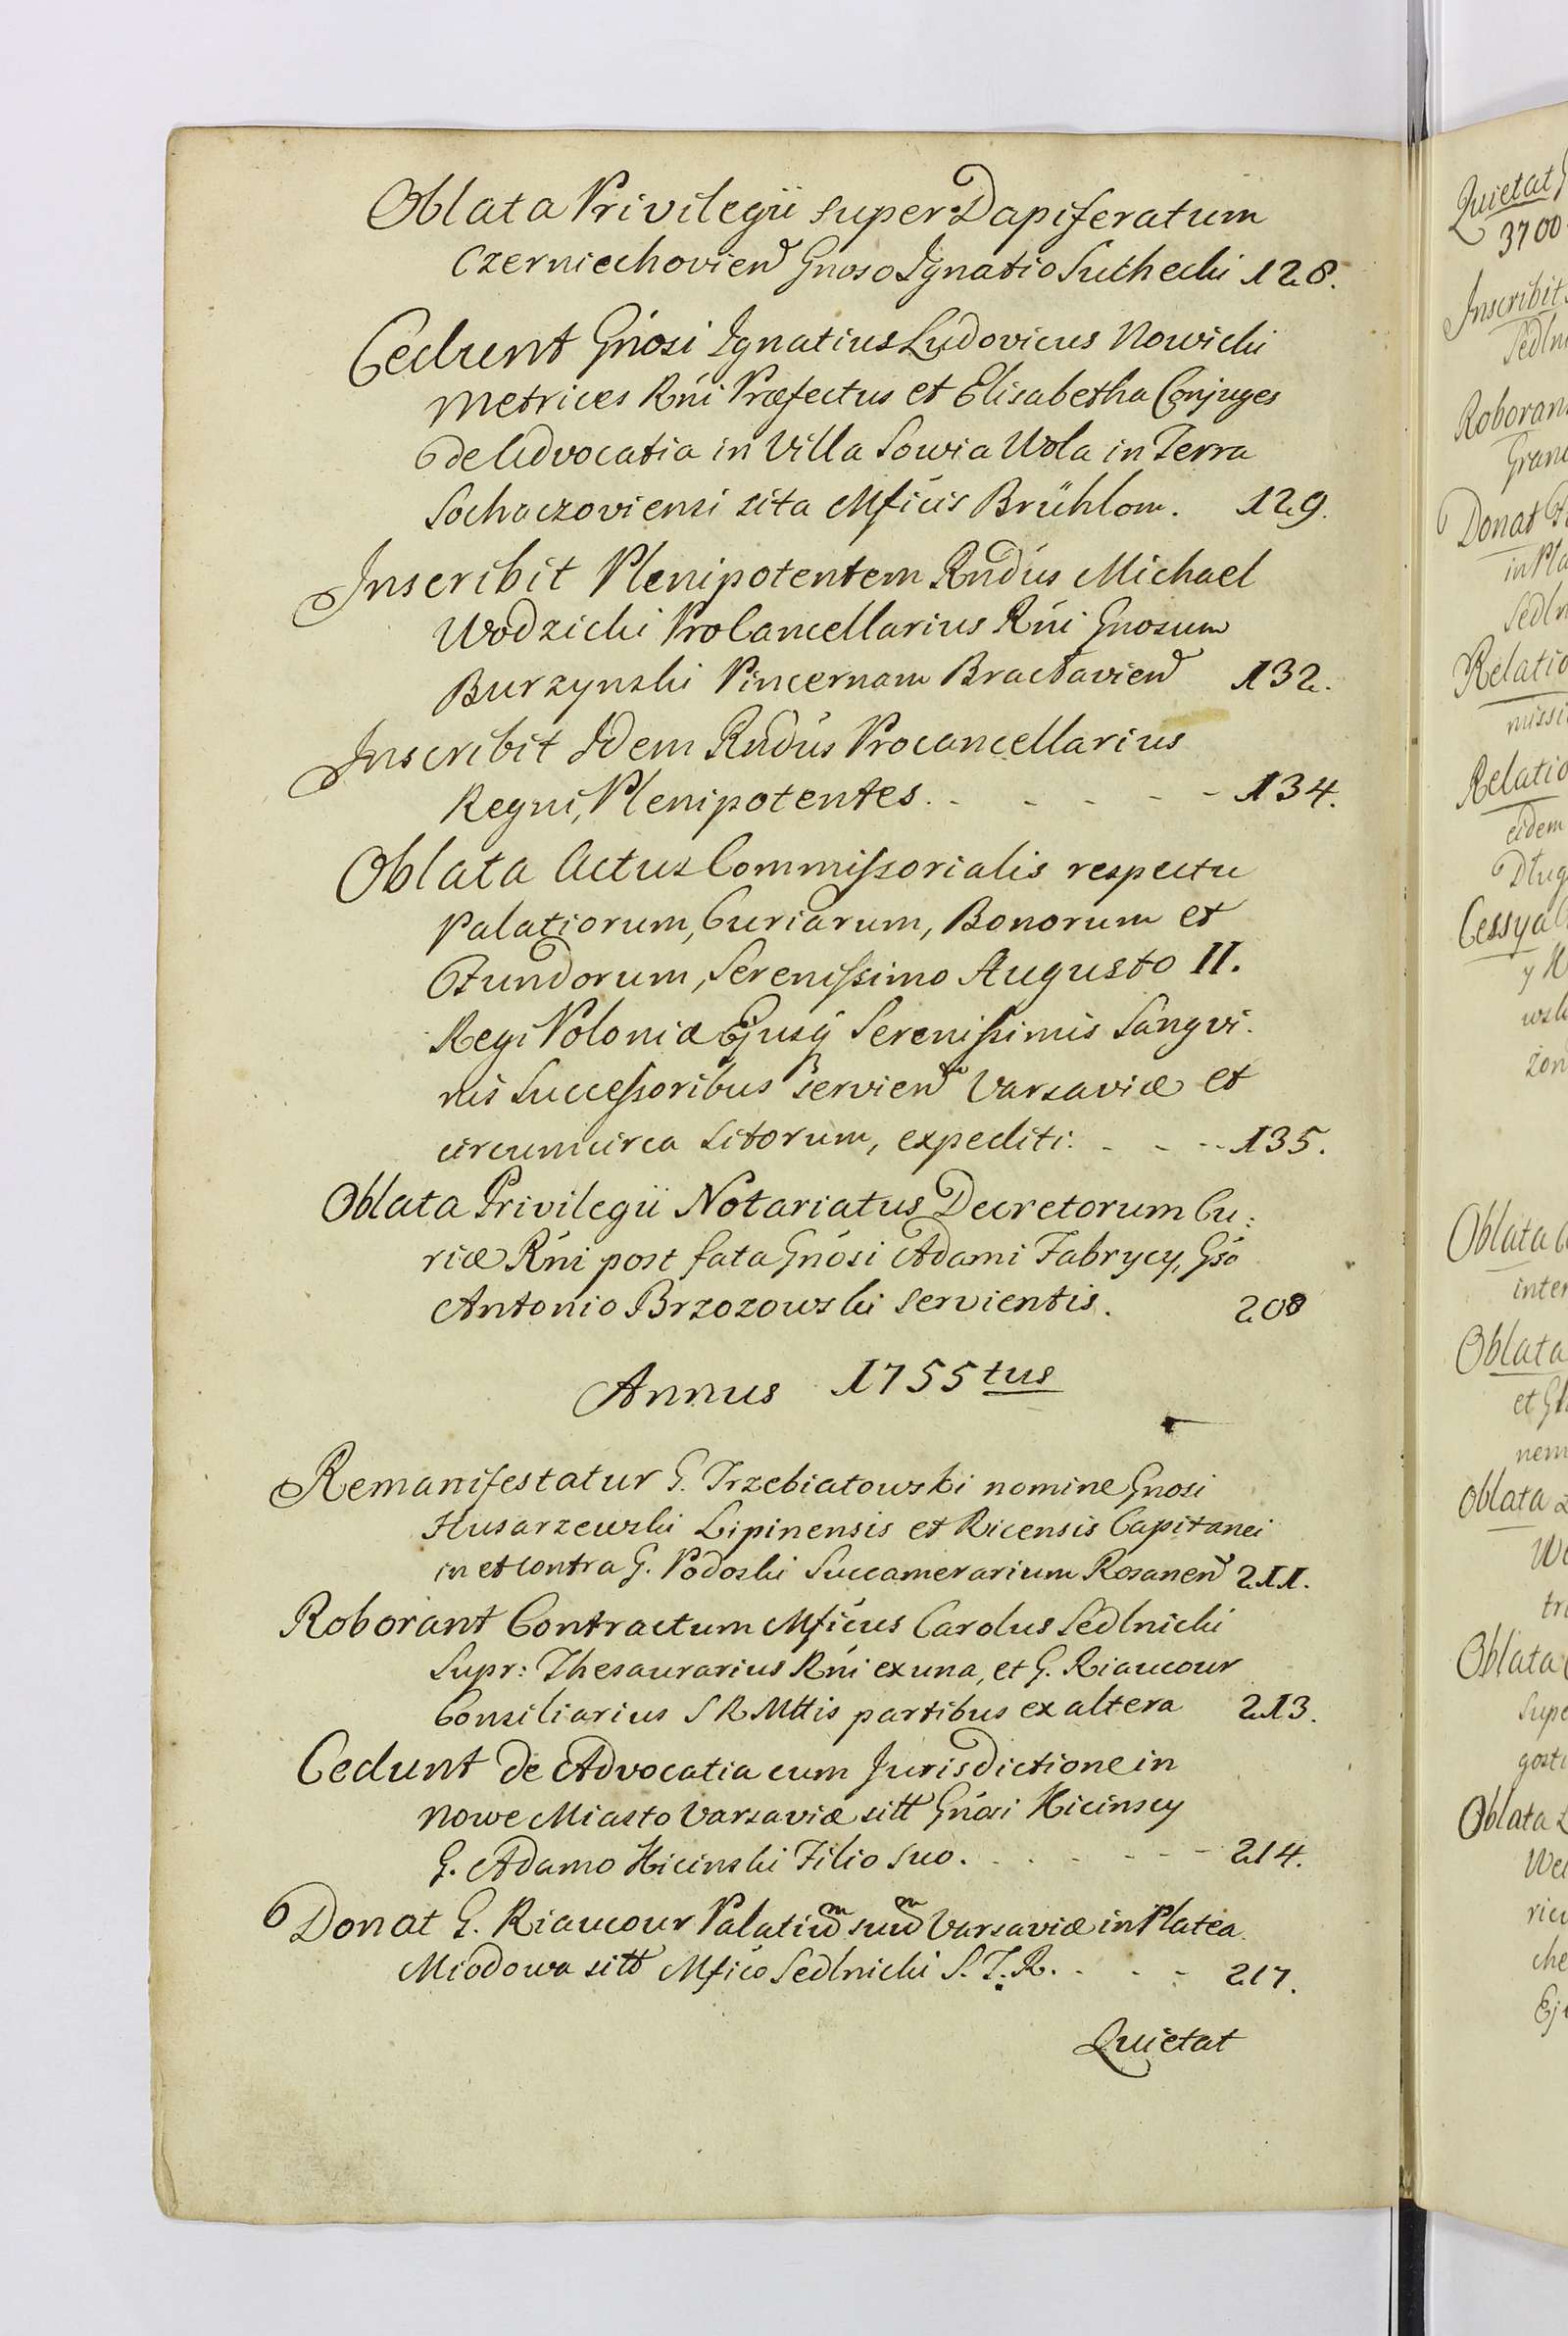 Oblata Privilegii super Dapiferatum
Czerniechovien Gnoso Ignatio Suchecki 128.
Cedunt Gnosi Ignatius Ludovicus Nowicki
Metrices Rni Præfectus et Elisabetha Conjuges
de Advocatia in Villa Sowia Wola in Terra
Sochaczoviensi sita Mficis Brühlom. 129.
Inscribit Plenipotentem Rndus Michael
Wodzicki ProCancellarius Rni Gnosum
Burzynski Pincernam Braclavien 132.
Inscribit Idem Rndus Procancellarius
Regni, Plenipotentes. - - - - - 134.
Oblata Actus Commissorialis respectu
Palatiorum, Curiarum, Bonorum et
Fundorum, Serenissimo Augusto II.
Regi Poloniæ Ejusq Serenissimis Sangvi-
nis Successoribus servien Varsaviæ et
circumcirca sitorum, expediti. - - - 135.
Oblata Privilegii Notariatus Decretorum Cu:
riæ Rni post fata Gnosi Adami Fabrycy, Gso
Antonio Brzozowski servientis. 208
Annus 1755tus
Remanifestatur G. Trzebiatowski nomine Gnosi
Husarzewski Lipinensis et Ricensis Capitanei
in et contra G. Podoski Succamerarium Rosanen 211.
Roborant Contractum Mficus Carolus Sedlnicki
Supr: Thesaurarius Rni ex una, et G. Riaucour
Consiliarius S R Mttis partibus ex altera 213.
Cedunt de Advocatia cum Jurisdictione in
Nowe Miasto Varsaviæ sitt Gnosi Kicinscy
G. Adamo Kicinski Filio suo. - - - - - 214.
Donat G. Riaucour Palatium suum Varsaviæ in Platea
Miodowa sitt Mfico Sedlnicki S. T. R. - - - 217.
Quietat
Quietat
3700
Inscribit
Sedln
Roboran
Gran
Donat
in Pla
Sedln
Relatio
missi
Relatio
eidem
Dług
Cessya
y
żon
Oblata
inter
Oblata
et
nem
Oblata
Oblata
Supe
gosti
Oblata
che